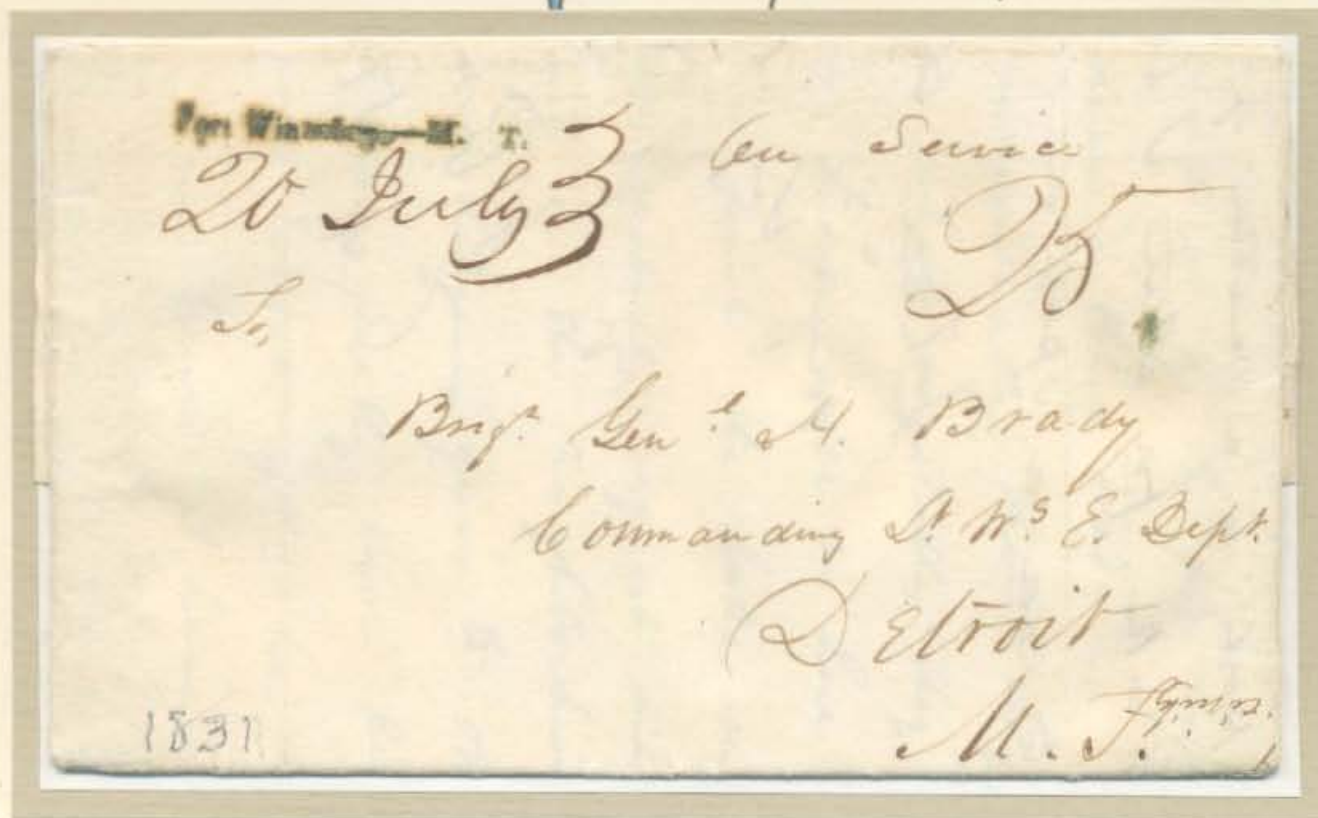 Fort Winnebago—M. T.
20 July
On Service
25
To,
Brigr. Genl. H. Brady
Commanding Dt. Ws. E. Dept.
Detroit
M. T.
1831